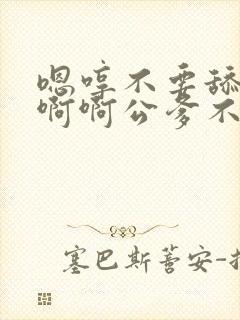 嗯哼不要舔
啊啊公爹不
塞巴斯蒈安-